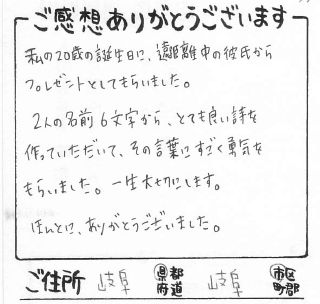 ご感想ありがとうございます
私の20歳の誕生日に、遠距離中の彼氏から
プレゼントとしてもらいました。
2人の名前6文字から、とても良い詩を
作っていただいて、その言葉にすごく勇気を
もらいました。一生大切にします。
ほんとに、ありがとうございました。
ご住所 岐阜 都道府県 岐阜 市区町郡